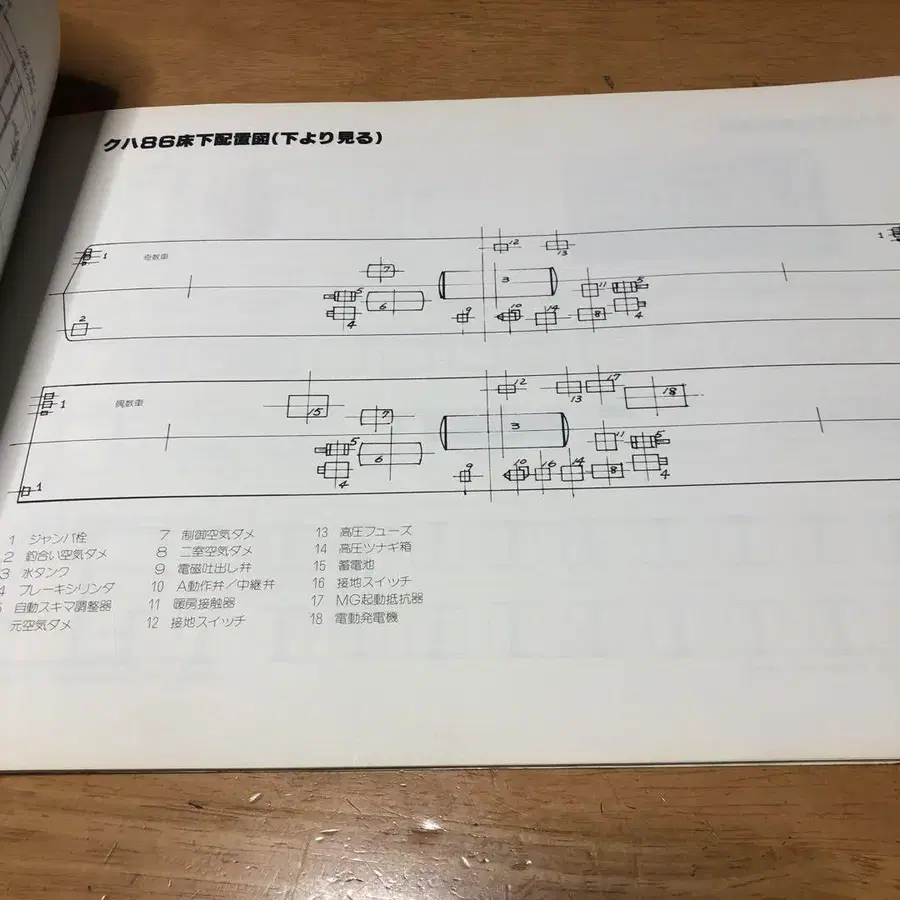 クハ86床下配置図(下より見る)
奇数車
1
12
13
1
7
3
5
6
11
5
2
4
9
10
14
8
4
偶数車
1
15
7
12
13
17
18
3
5
6
11
5
4
9
10
16
14
8
4
1
1 ジャンパ栓
2 釣合い空気ダメ
3 水タンク
4 ブレーキシリンダ
5 自動スキマ調整器
元空気ダメ
7 制御空気ダメ
8 二室空気ダメ
9 電磁吐出し弁
10 A動作弁/中継弁
11 暖房接触器
12 接地スイッチ
13 高圧フューズ
14 高圧ツナギ箱
15 蓄電池
16 接地スイッチ
17 MG起動抵抗器
18 電動発電機